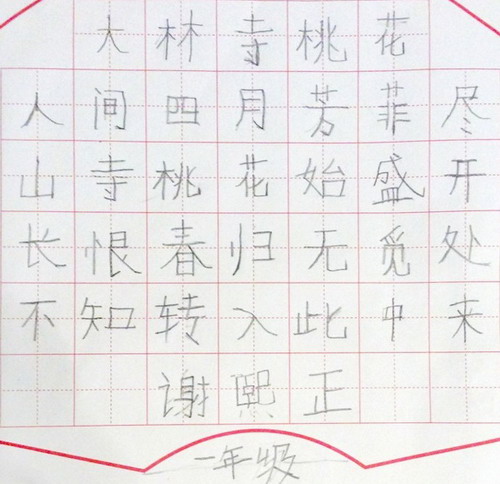 大林寺桃花
人间四月芳菲尽
山寺桃花始盛开
长恨春归无觅处
不知转入此中来
谢熙正
一年级